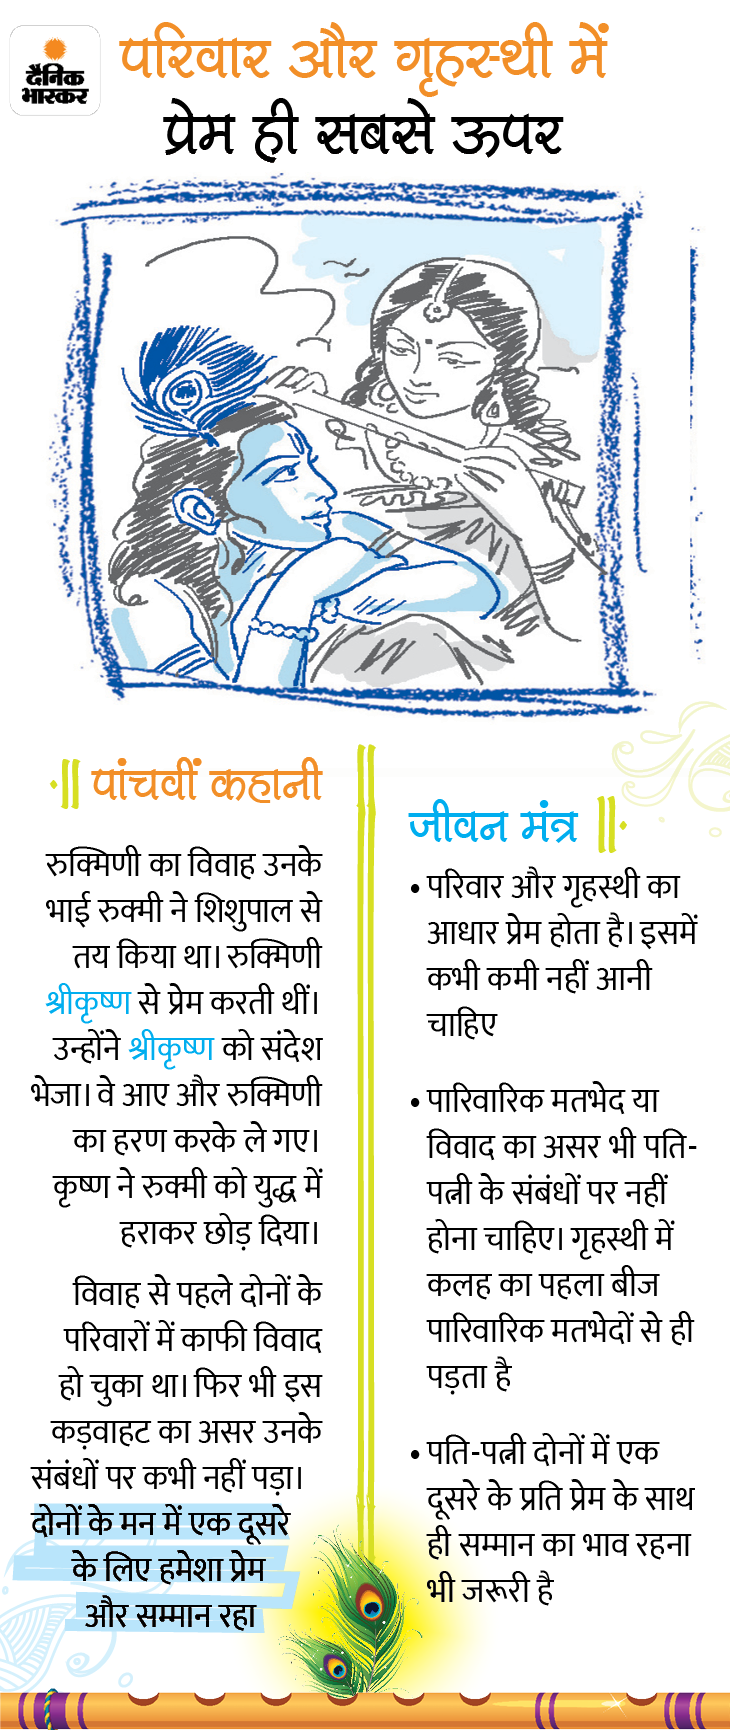 दैनिक
भास्कर
परिवार और गृहस्थी में
प्रेम ही सबसे ऊपर
पांचवीं कहानी
रुक्मिणी का विवाह उनके
भाई रुक्मी ने शिशुपाल से
तय किया था। रुक्मिणी
श्रीकृष्ण से प्रेम करती थीं।
उन्होंने श्रीकृष्ण को संदेश
भेजा। वे आए और रुक्मिणी
का हरण करके ले गए।
कृष्ण ने रुक्मी को युद्ध में
हराकर छोड़ दिया।
विवाह से पहले दोनों के
परिवारों में काफी विवाद
हो चुका था। फिर भी इस
कड़वाहट का असर उनके
संबंधों पर कभी नहीं पड़ा।
दोनों के मन में एक दूसरे
के लिए हमेशा प्रेम
और सम्मान रहा
जीवन मंत्र
• परिवार और गृहस्थी का
आधार प्रेम होता है। इसमें
कभी कमी नहीं आनी
चाहिए
• पारिवारिक मतभेद या
विवाद का असर भी पति-
पत्नी के संबंधों पर नहीं
होना चाहिए। गृहस्थी में
कलह का पहला बीज
पारिवारिक मतभेदों से ही
पड़ता है
• पति-पत्नी दोनों में एक
दूसरे के प्रति प्रेम के साथ
ही सम्मान का भाव रहना
भी जरूरी है